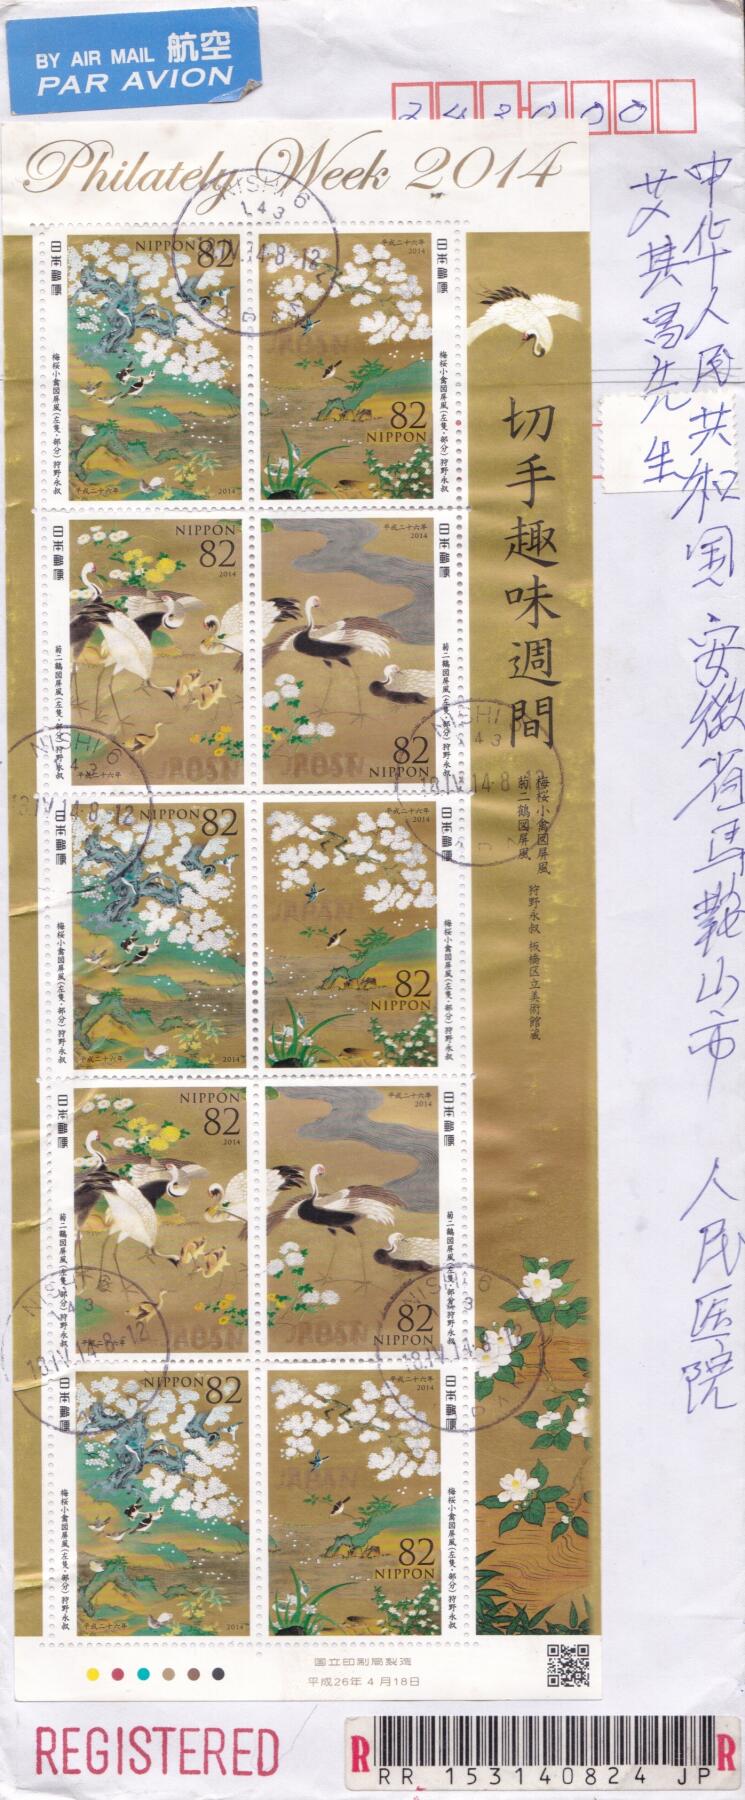 BY AIR MAIL 航空
PAR AVION
243000
Philately Week 2014
中华人民共和国安徽省马鞍山市 人民医院
先生
切手趣味週間
梅桜小禽図屏風
菊二鶴図屏風
狩野永叔 板橋区立美術館蔵
日本郵便
NIPPON 82
梅桜小禽図屏風(左隻・部分)狩野永叔
平成二十六年 2014
平成二十六年
2014
82
NIPPON
日本郵便
梅桜小禽図屏風(左隻・部分)狩野永叔
日本郵便
NIPPON
82
2014
菊二鶴図屏風(左隻・部分)狩野永叔
平成二十六年
平成二十六年
2014
82
NIPPON
日本郵便
菊二鶴図屏風(左隻・部分)狩野永叔
日本郵便
NIPPON 82
梅桜小禽図屏風(左隻・部分)狩野永叔
平成二十六年 2014
JAPAN
82
NIPPON
日本郵便
梅桜小禽図屏風(左隻・部分)狩野永叔
日本郵便
NIPPON
82
2014
菊二鶴図屏風(左隻・部分)狩野永叔
平成二十六年
平成二十六年
2014
82
NIPPON
日本郵便
菊二鶴図屏風(左隻・部分)狩野永叔
日本郵便
NIPPON 82
梅桜小禽図屏風(左隻・部分)狩野永叔
平成二十六年 2014
平成二十六年
2014
JAPAN
82
NIPPON
日本郵便
梅桜小禽図屏風(左隻・部分)狩野永叔
NISHI 6
143
18.IV.14.8-12
NISHI 6
143
18.IV.14.8-12
NISHI 6
143
18.IV.14.8-12
NISHI 6
143
18.IV.14.8-12
NISHI 6
143
18.IV.14.8-12
国立印刷局製造
平成26年 4月18日
REGISTERED
R R
RR 153140824 JP